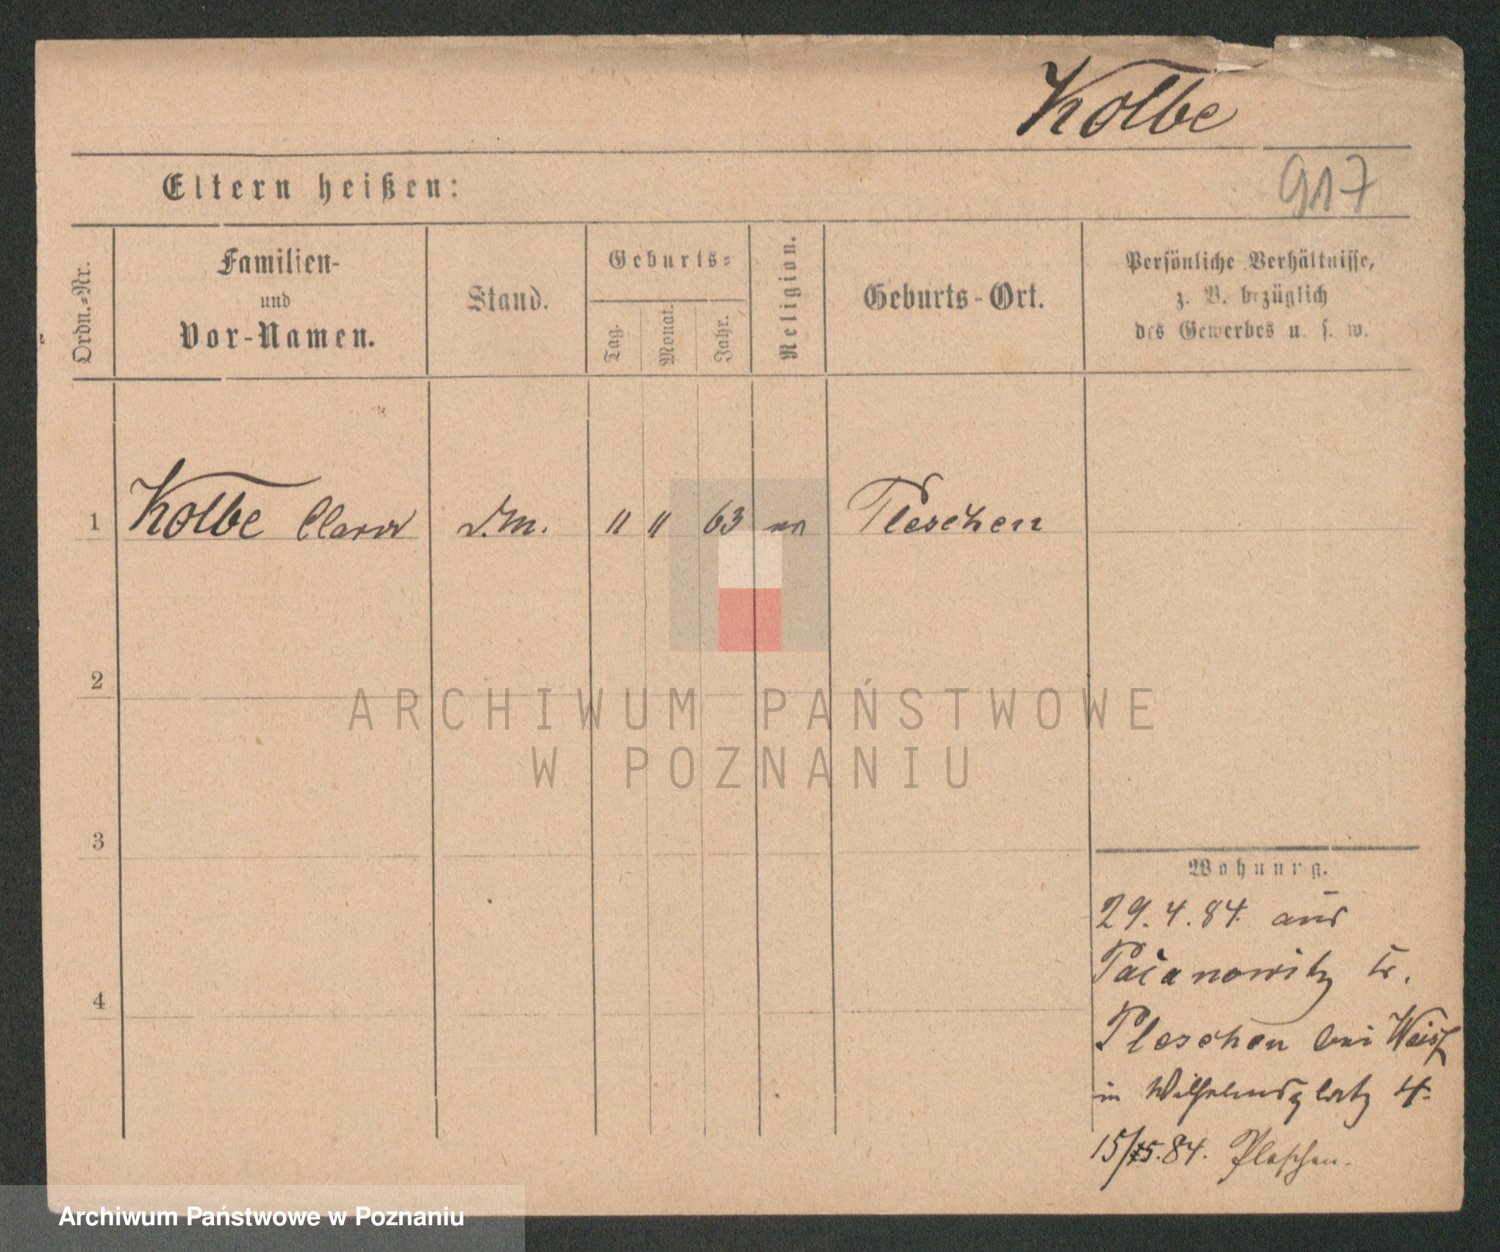 Kolbe
917
Eltern heißen:
Ordn.-Nr.
Familien-
und
Vor-Namen.
Stand.
Geburts-
Tag.
Monat.
Jahr.
Religion.
Geburts-Ort.
Persönliche Verhältnisse,
z. B. bezüglich
des Gewerbes u. s. w.
1 Kolbe Clara d.M. " " 63 Pleschen
2
ARCHIWUM PAŃSTWOWE
W POZNANIU
3
Wohnung.
29.4.84 aus
Pacanowitz Kr.
Pleschen bei Weiß
in Wilhelmsplatz 4.
4
15/5.84. Pleschen.
Archiwum Państwowe w Poznaniu